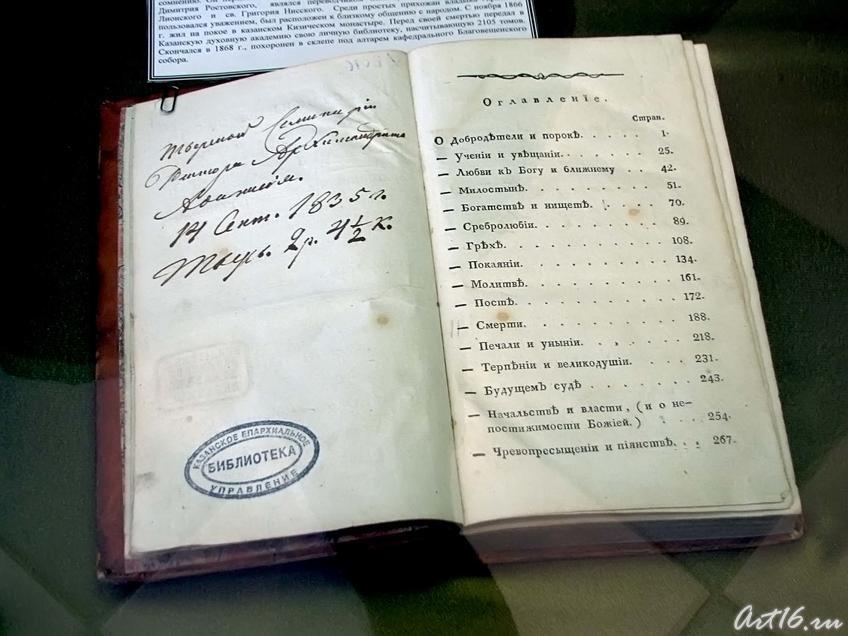 Димитрия Ростовского, являлся переводчиком
Лионского и св. Григория Нисского. Среди простых прихожан владыка
пользовался уважением, был расположен к близкому общению с народом. С ноября 1866
г. жил на покое в казанском Кизическом монастыре. Перед своей смертью передал в
Казанскую духовную академию свою личную библиотеку, насчитывающую 2105 томов.
Скончался в 1868 г., похоронен в склепе под алтарем кафедрального Благовещенского
собора.
Тверской Семинаріи
Ректора Архимандрита
Аѳанасія.
14 Сент. 1835 г.
Тверь. 2 р. 4½ к.
КАЗАНСКОЕ ЕПАРХИАЛЬНОЕ
БИБЛИОТЕКА
УПРАВЛЕНИЕ
Оглавленіе.
Стран.
О Добродѣтели и порокѣ. . . . . 1.
— Ученіи и увѣщаніи. . . . . . . 25.
— Любви къ Богу и ближнему . . 42.
— Милостынѣ. . . . . . . . . 51.
— Богатствѣ и нищетѣ. . . . . . 70.
— Сребролюбіи. . . . . . . . . 89.
— Грѣхѣ. . . . . . . . . . . 108.
— Покаяніи. . . . . . . . . . 134.
— Молитвѣ. . . . . . . . . . 161.
— Постѣ. . . . . . . . . . . 172.
— Смерти. . . . . . . . . . . 188.
— Печали и уныніи. . . . . . . 218.
— Терпѣніи и великодушіи. . . . . 231.
— Будущемъ судѣ . . . . . . . 243.
— Начальствѣ и власти, (и о не-
постижимости Божіей.) . . . . 254.
— Чревопресыщеніи и піянствѣ. . . 267.
Art16.ru